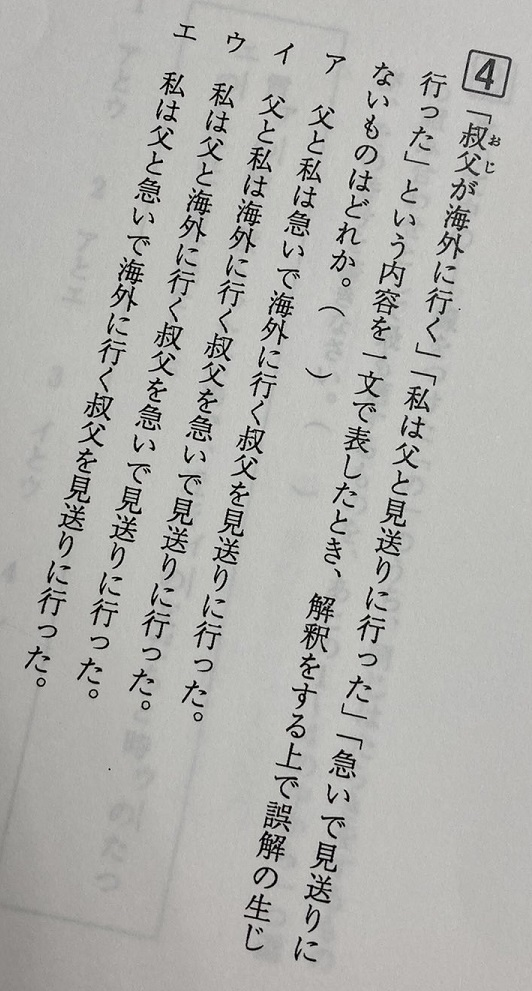 4 「叔父が海外に行く」「私は父と見送りに行った」「急いで見送りに
行った」という内容を一文で表したとき、解釈をする上で誤解の生じ
ないものはどれか。（　　）
ア 父と私は急いで海外に行く叔父を見送りに行った。
イ 父と私は海外に行く叔父を急いで見送りに行った。
ウ 私は父と海外に行く叔父を急いで見送りに行った。
エ 私は父と急いで海外に行く叔父を見送りに行った。